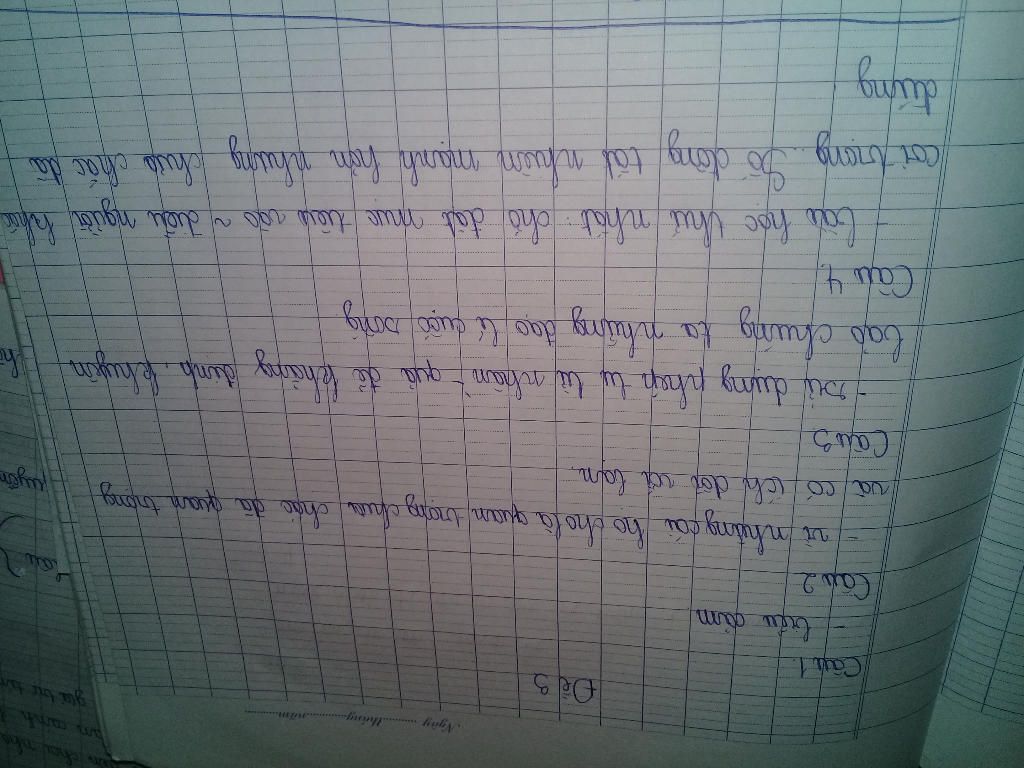 Ngày ........ tháng ........ năm ........
Đề 3
Câu 1.
- biểu cảm
Câu 2
- vì những cái họ cho là quan trọng chưa chắc đã quan trọng
và có ích đối với bạn.
Câu 3
- sử dụng phép từ từ nhân - quả để khẳng định, khuyên
bảo chúng ta những đạo lí cuộc sống.
Câu 4.
- bài học thứ nhất: chớ đặt mục tiêu vào ~ điều người khác
coi trọng. Số đông tất nhiên mạnh hơn nhưng chưa chắc đã
đúng
Câu 2